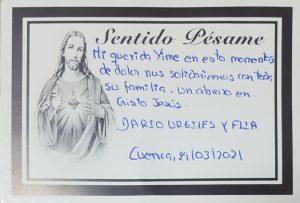 Sentido Pésame
Mi querida Yime en estos momentos
de dolor nos solidarizamos con toda
su familia. Un abrazo en
Cristo Jesús.
DARIO URGILES Y FLIA
Cuenca, 29/03/2021